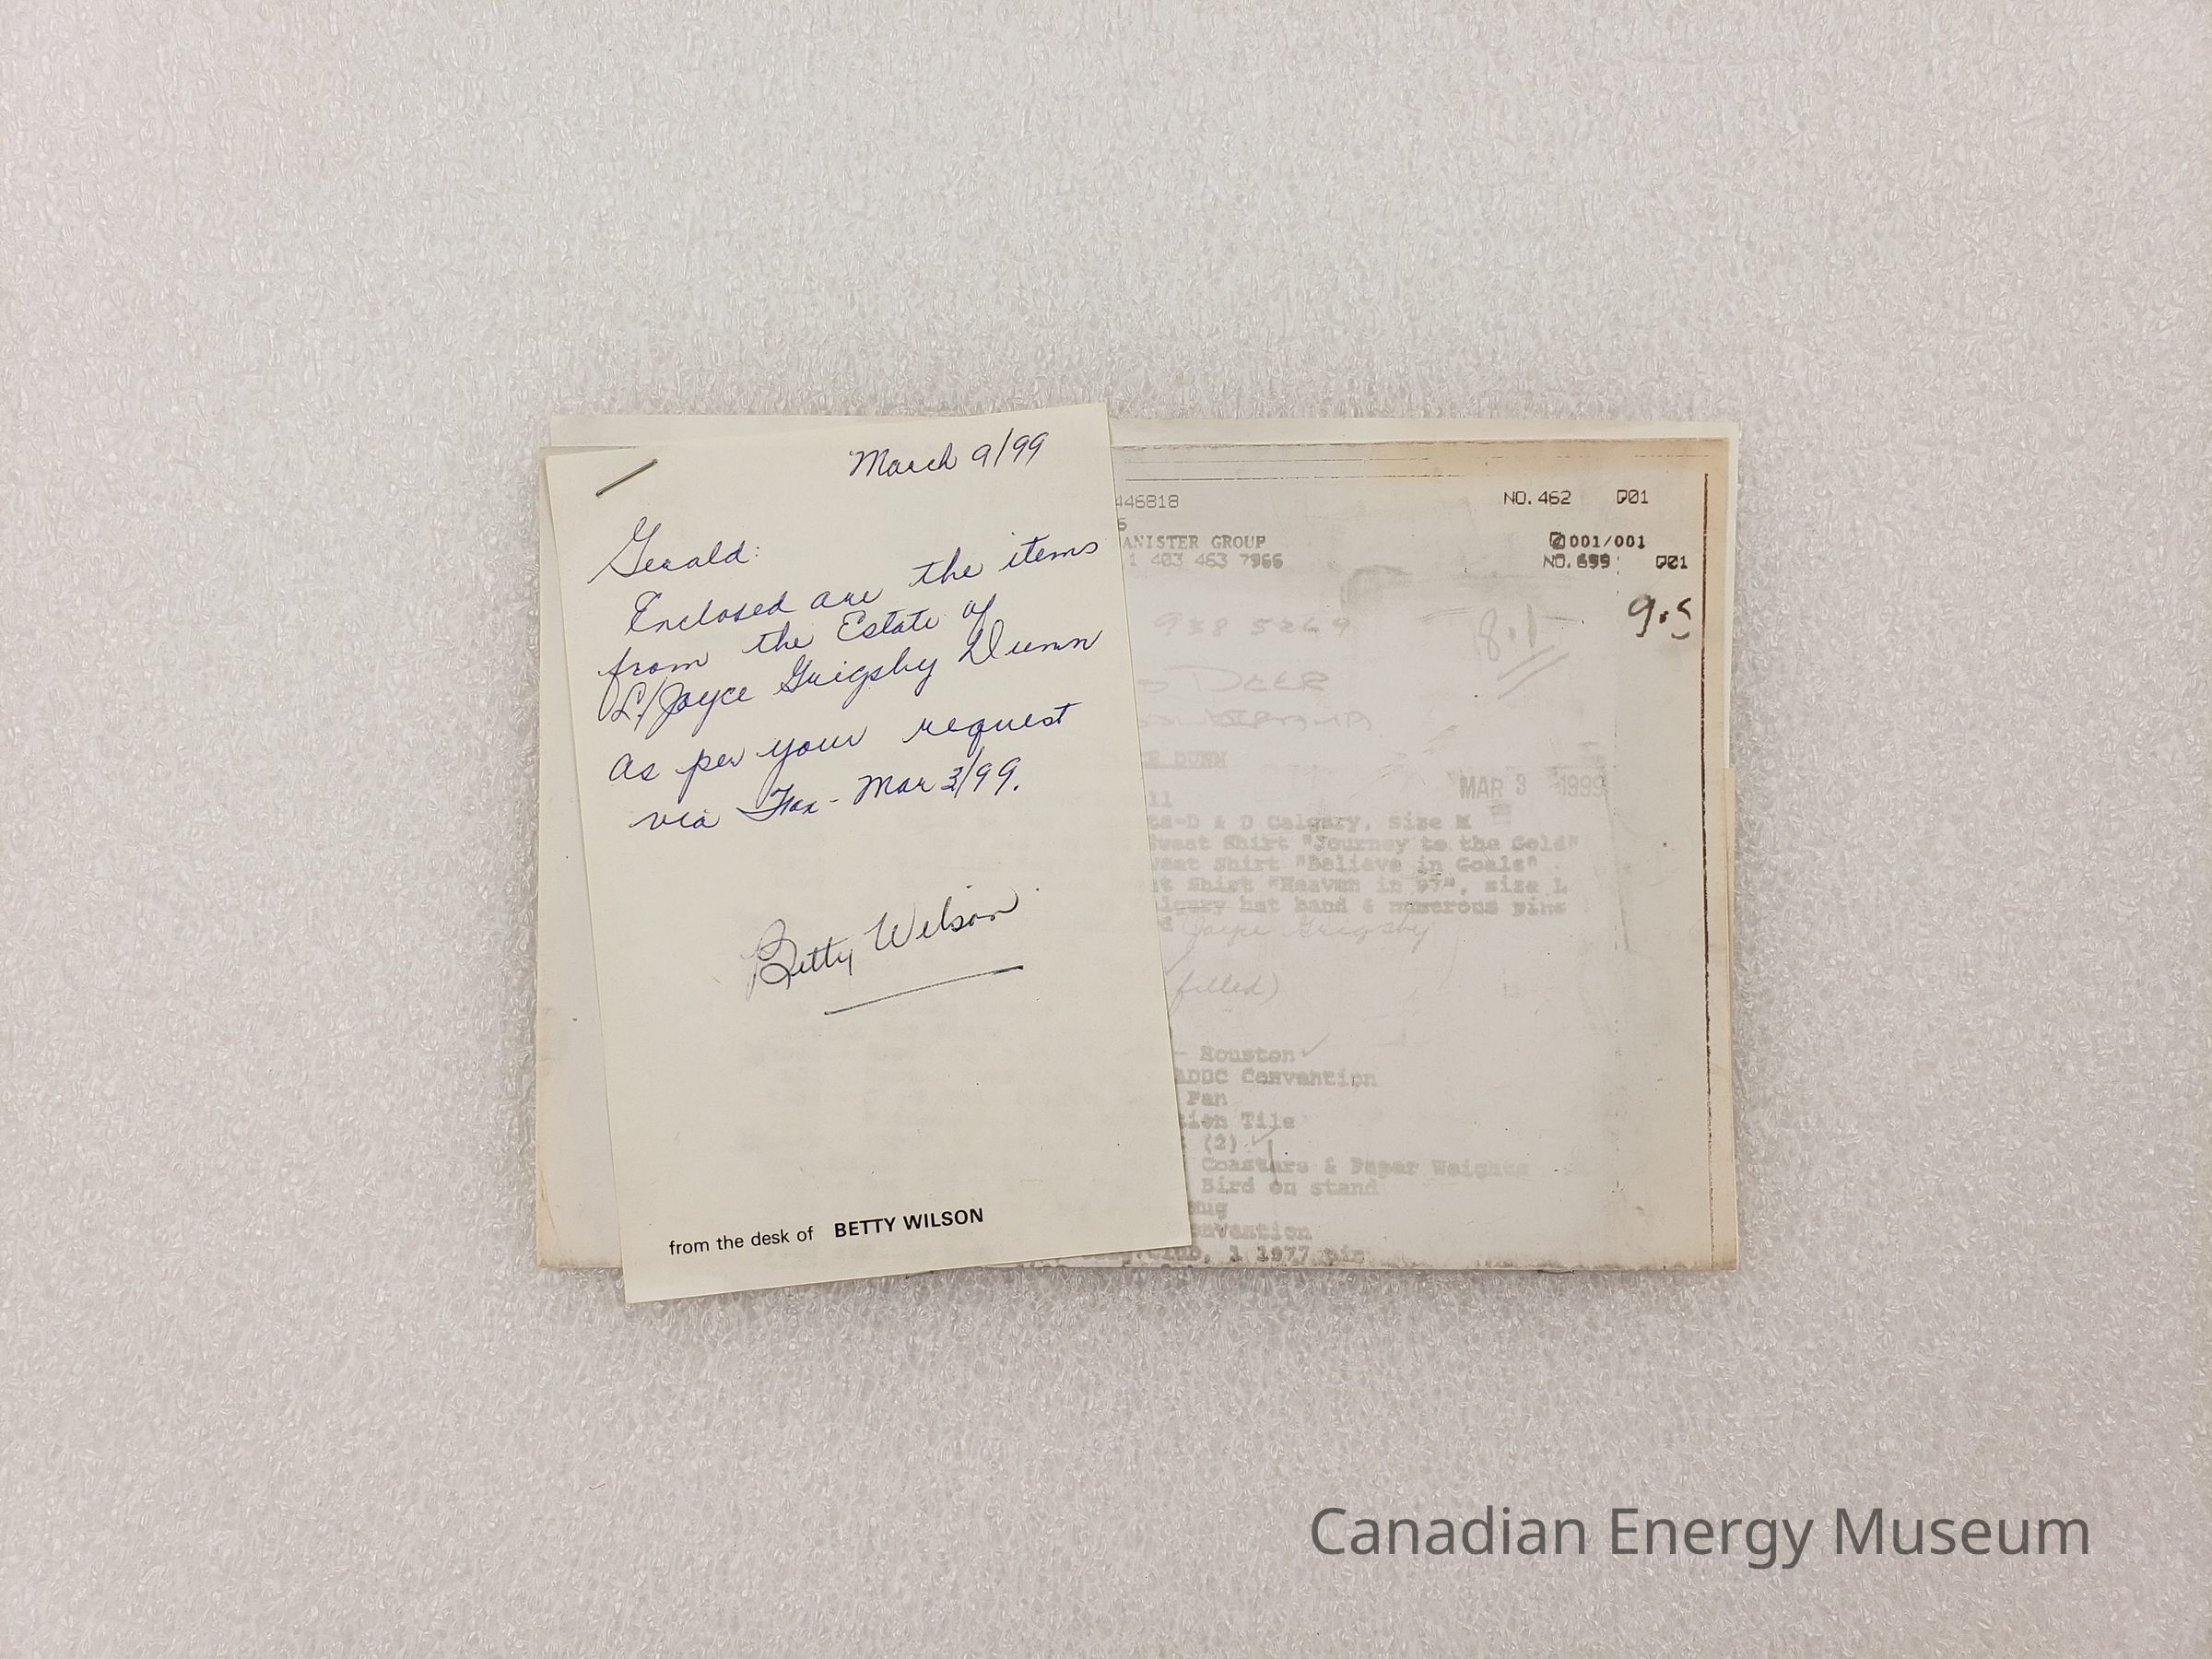 March 9/99
Gerald:
Enclosed are the items
from the Estate of
L/Joyce Grigsby Dunn
as per your request
via Fax - Mar 3/99.
Betty Wilson
from the desk of BETTY WILSON
446818 NO. 462 P01
ANISTER GROUP 001/001
1 403 463 7966 NO. 699 P01
938 5269 8.1 9.5
DEER
DUNN
MAR 3 1999
11
ts-D & D Calgary, size M
Sweat Shirt "Journey to the Gold"
weat Shirt "Believe in Goals"
at Shirt "Heaven in 97", size L
lgary hat band & numerous pins
Joyce Grigsby
filled)
- Houston
ADDC Convention
Fan
tion Tile
(2)
Coasters & Paper Weights
Bird on stand
mug
nvention
Club, 1 1977 pin
Canadian Energy Museum